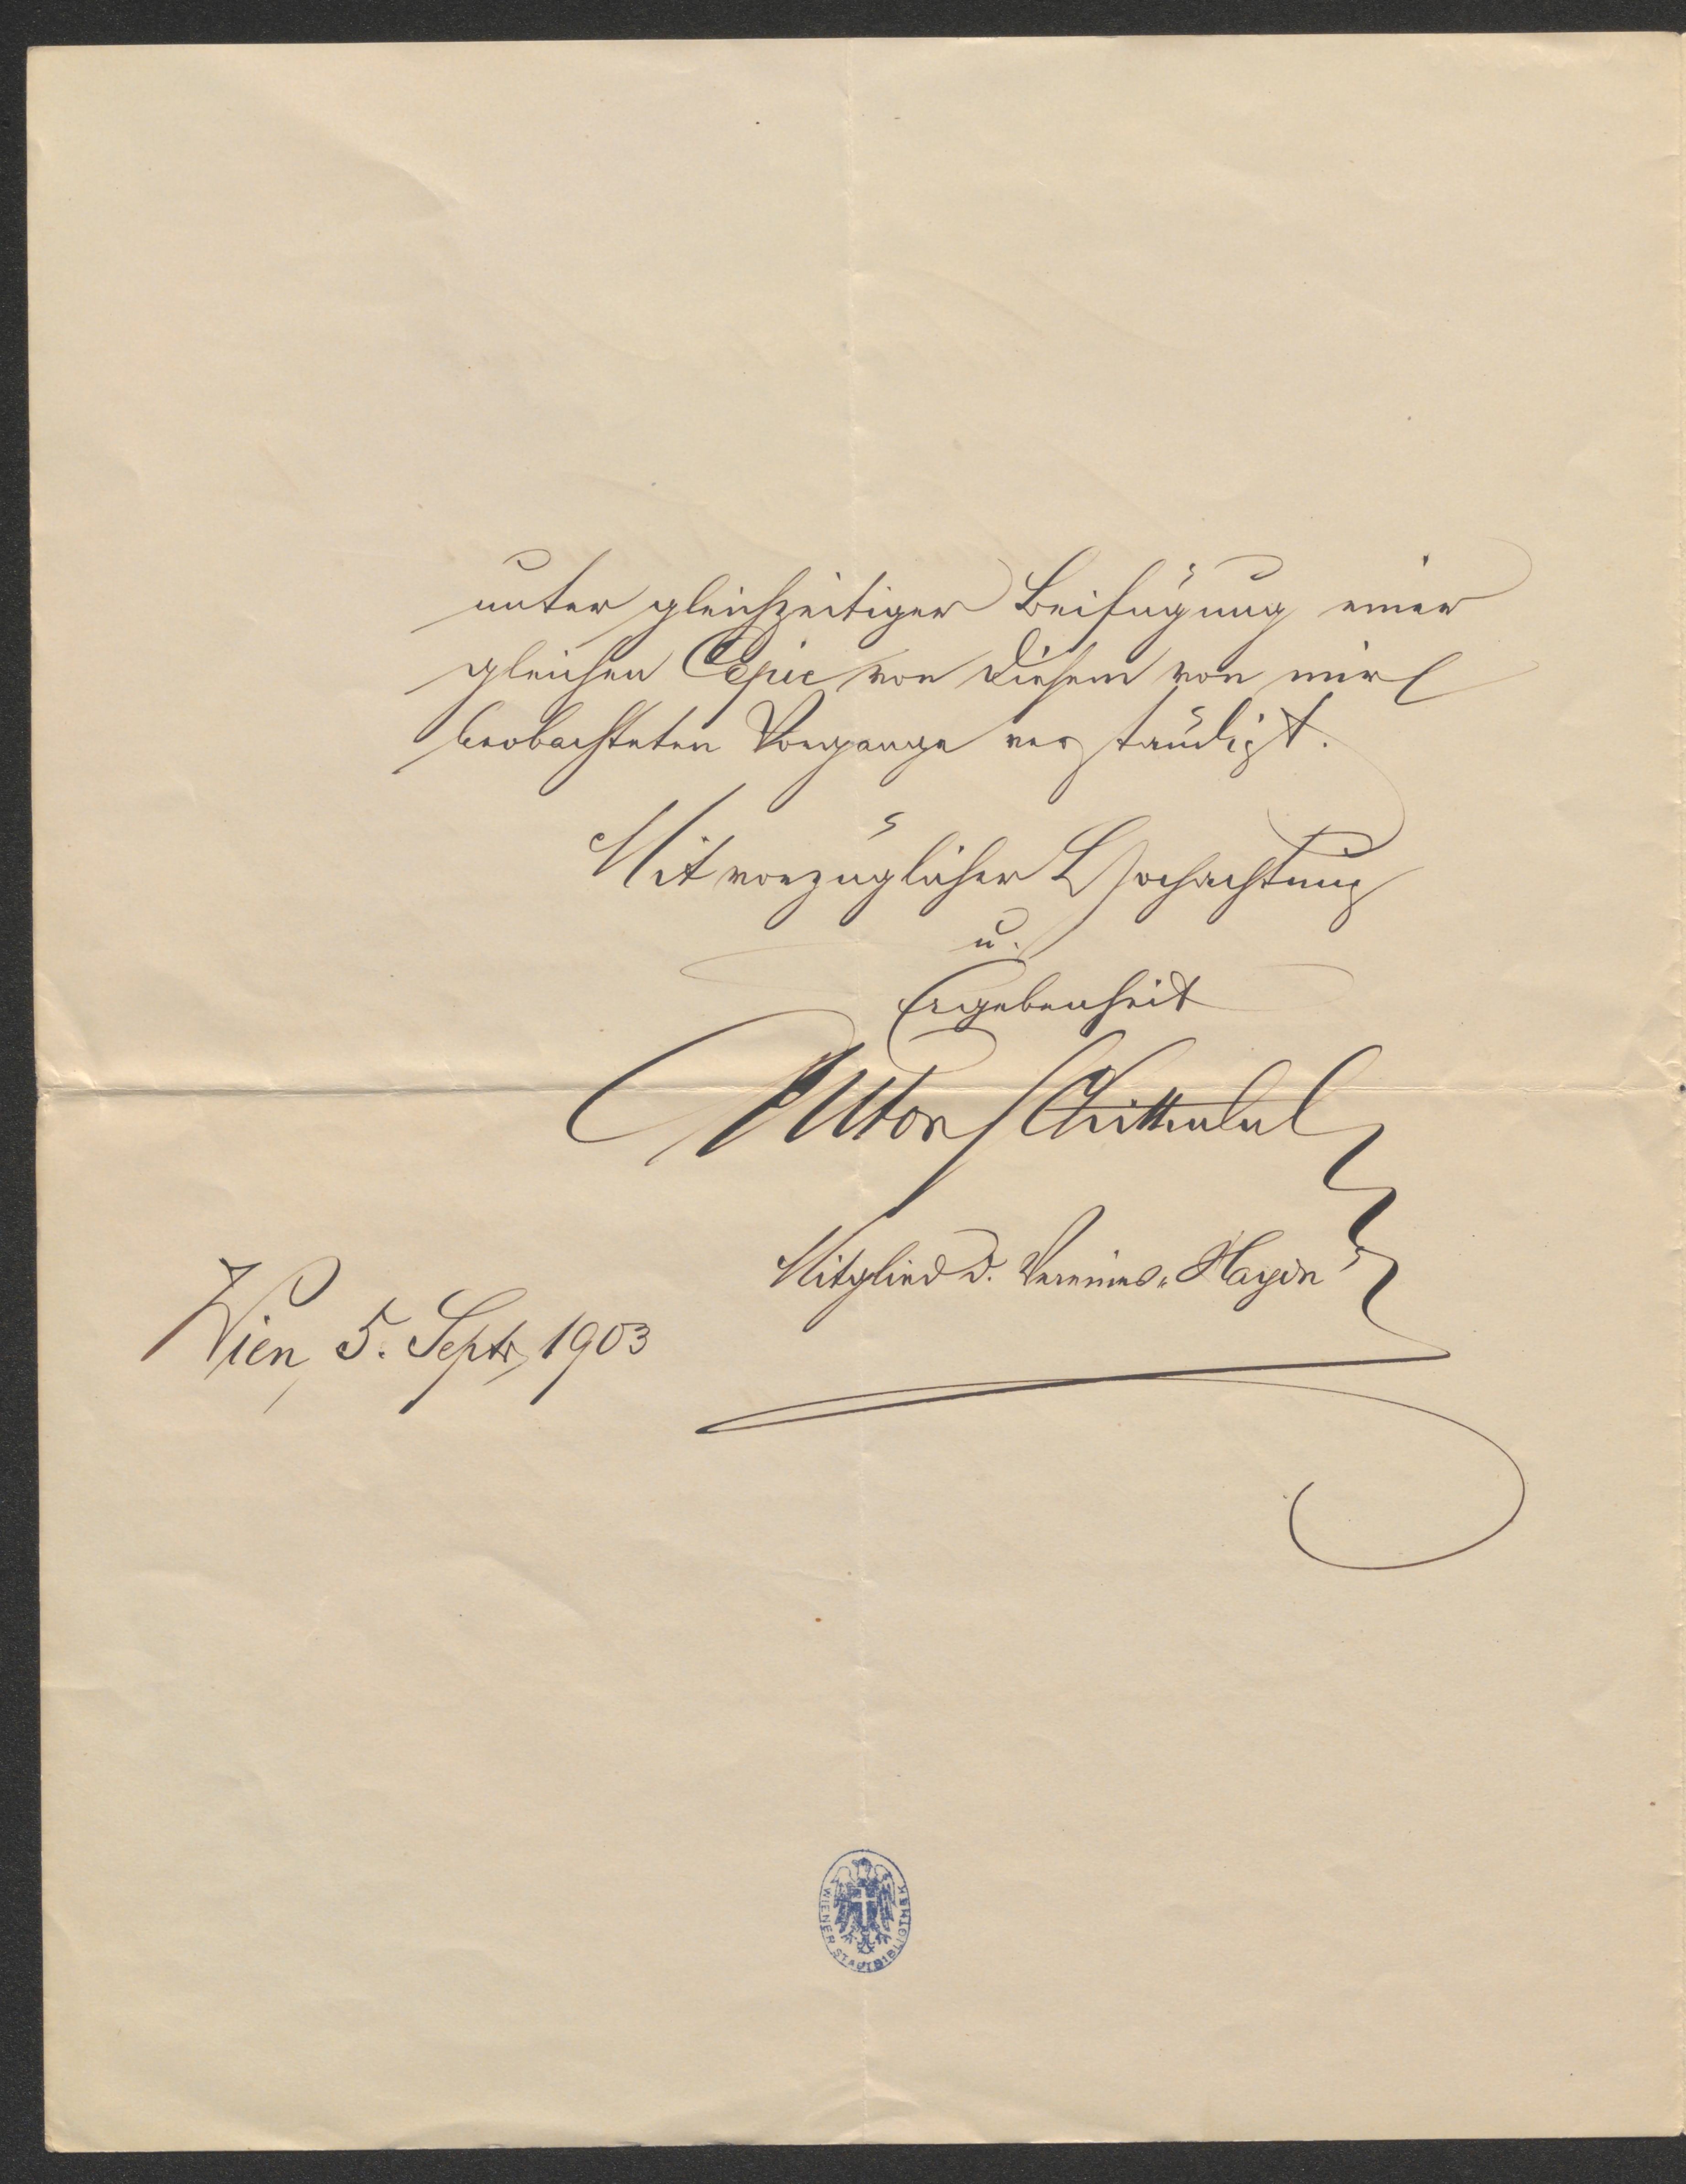 unter gleichzeitiger Beifügung einer
gleichen Copie von diesem von mir
beobachteten Vorgange verständigt.
Mit vorzüglicher Hochachtung
u.
Ergebenheit
Anton
Mitglied d. Vereines „Haydn"
Wien, 5. Septr, 1903
WIENER STADTBIBLIOTHEK